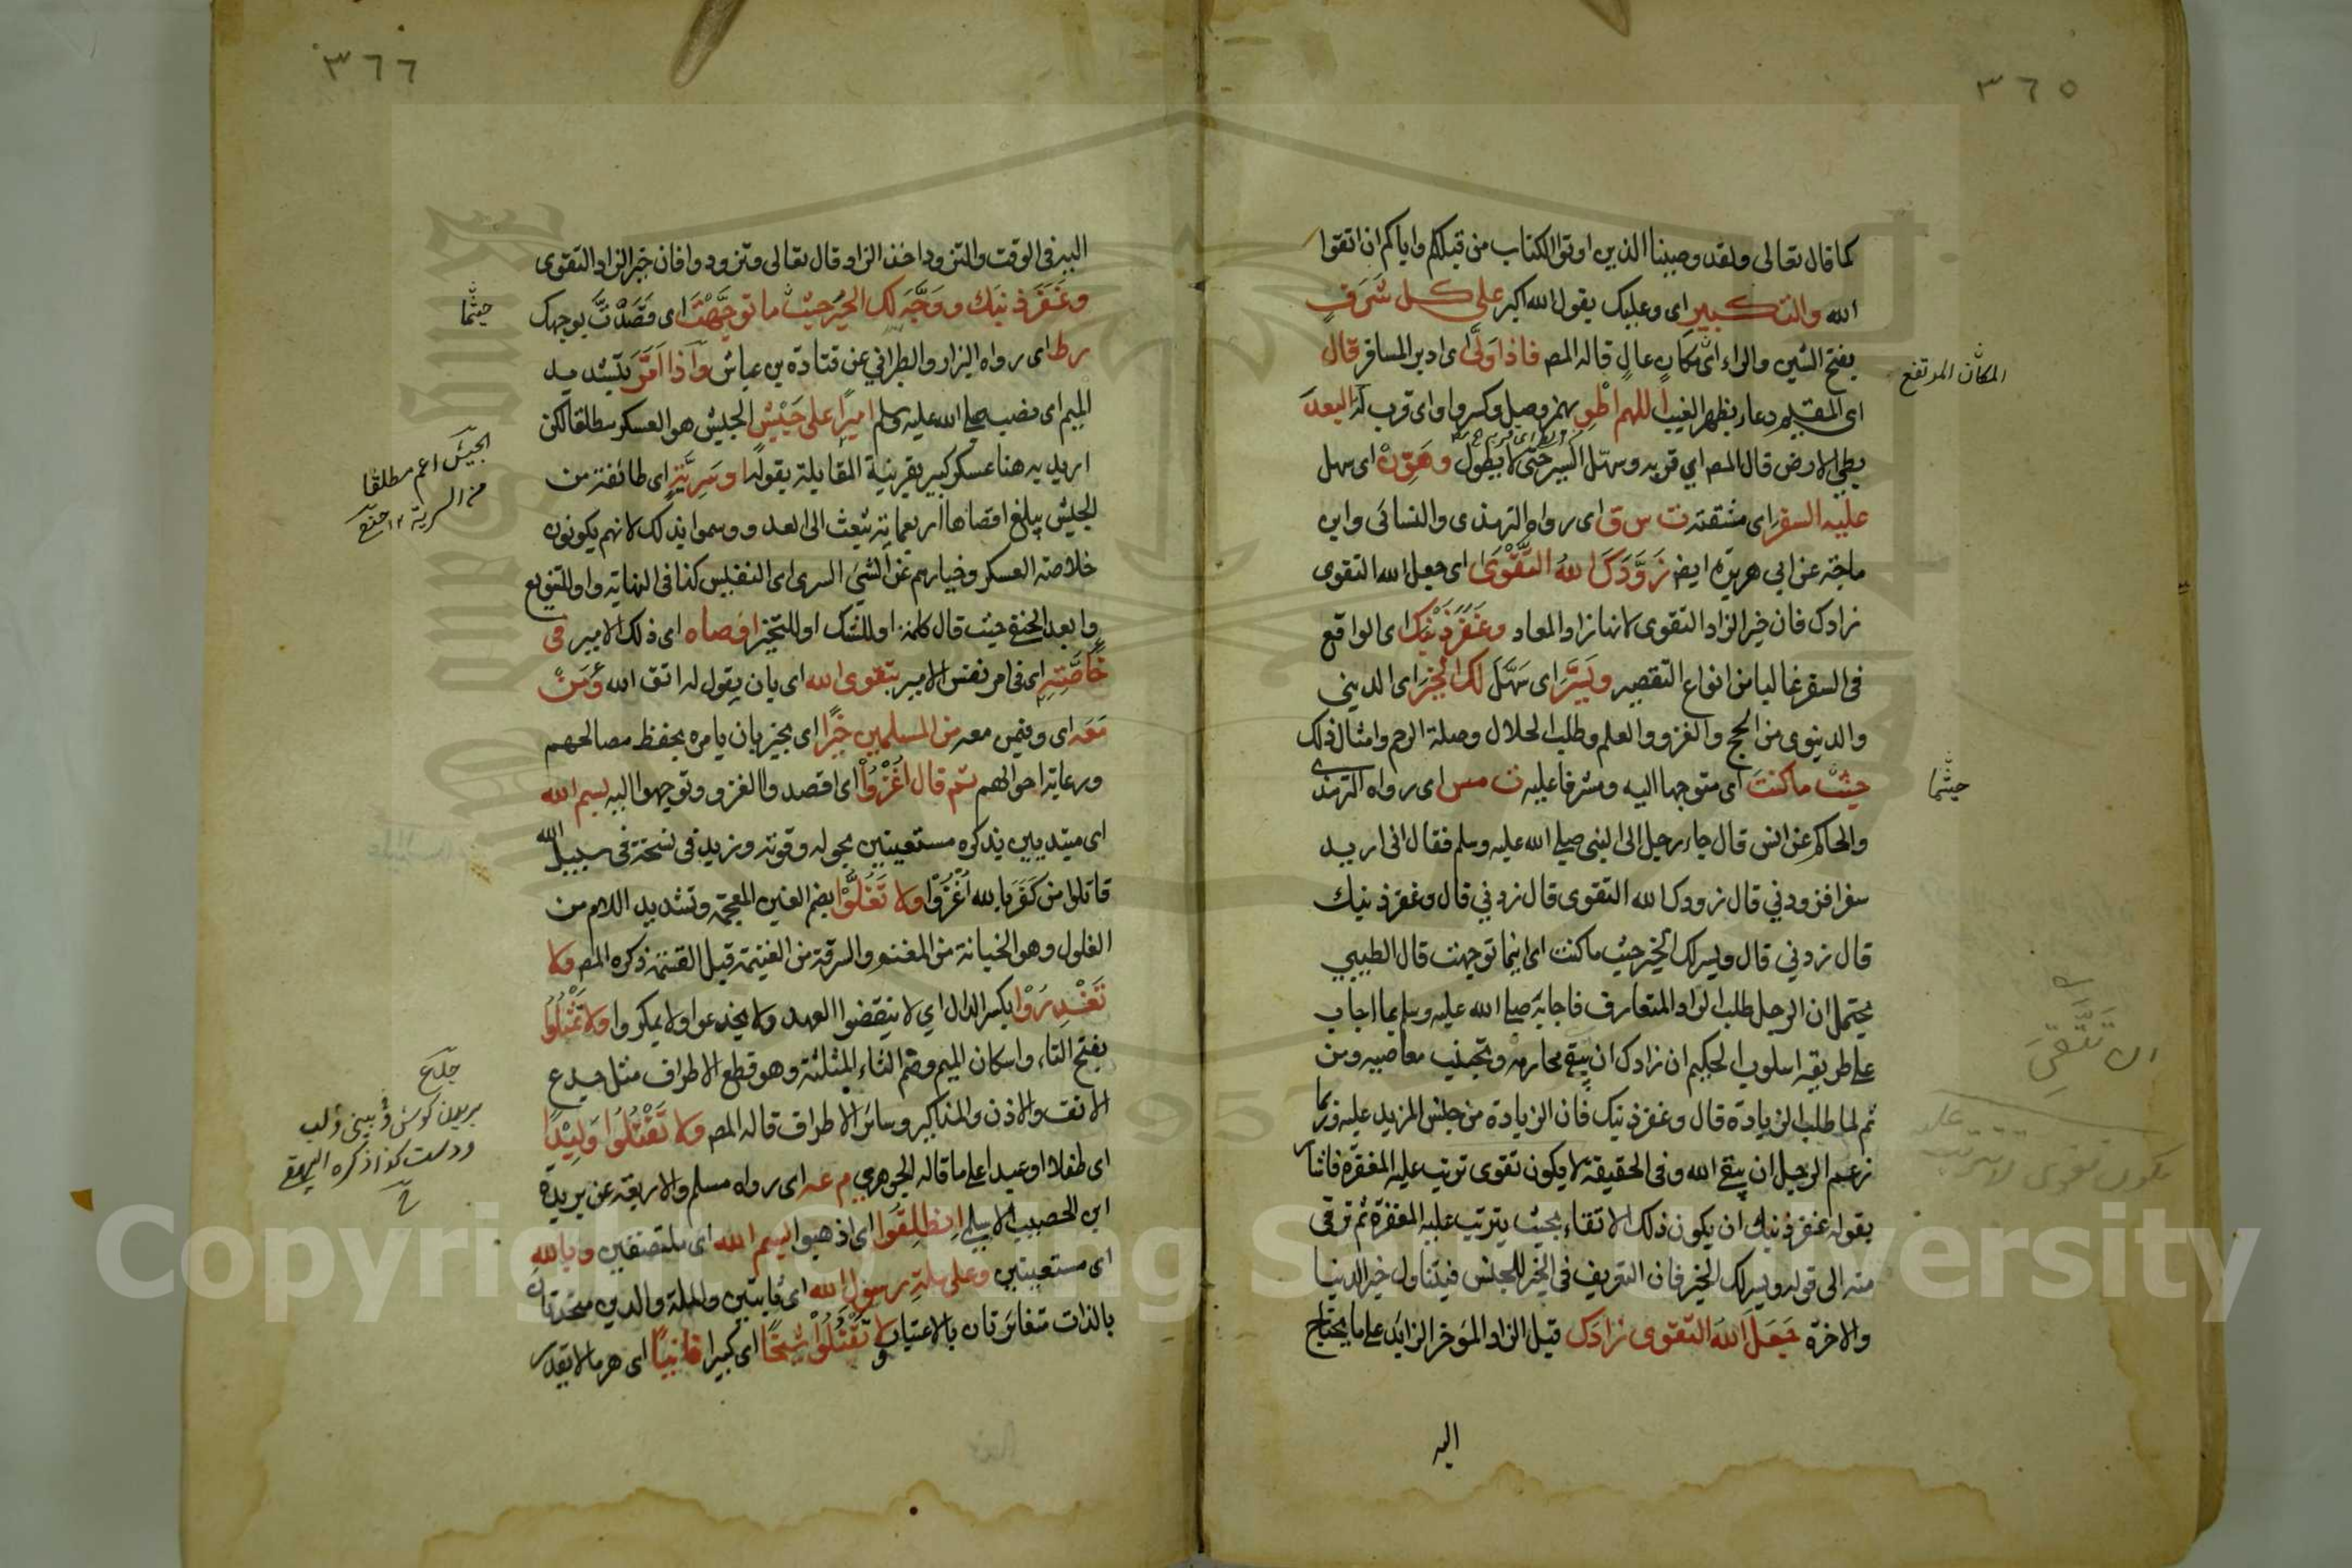 ٣٦٥
كما قال تعالى ولقد وصينا الذين اوتوا الكتاب من قبلكم واياكم ان اتقوا
الله والتكبير اى وعليك بقول الله اكبر على كل شَرَفٍ
بفتح الشين والراء اى مكان عالٍ قاله المص فاذا وَلَّى اى ادبر المسافر قال
اى المقيم دعاء بظهر الغيب اللهم اطْوِ بهمز وصل وكسر واو اى قرب له البعدَ
بطي الارض قال المص اي قربه وسهّل السير حتى لا يطول وهَوِّنْ اى سهل
عليه السفرَ اى مشقته ت س ق اى رواه الترمذى والنسائى وابن
ماجة عن ابي هريرة ايضا زَوَّدَكَ اللهُ التَّقْوَى اى جعل الله التقوى
زادك فان خير الزاد التقوى لانها زاد المعاد وغَفَرَ ذَنْبَكَ اى الواقع
فى السفر غالبا من انواع التقصير ويَسَّرَ اى سَهَّلَ لك الخيرَ اى الدينى
والدنيوى من الحج والغزو والعلم وطلب الحلال وصلة الرحم وامثال ذلك
حيث ما كنتَ اى متوجها اليه ومشرفا عليه ت مس اى رواه الترمذى
والحاكم عن انس قال جاء رجل الى النبى صلى الله عليه وسلم فقال انى اريد
سفرا فزودني قال زودك الله التقوى قال زدني قال وغفر ذنبك
قال زدني قال ويسر لك الخير حيث ما كنت اى اينما توجهت قال الطيبي
يحتمل ان الرجل طلب الزاد المتعارف فاجابه صلى الله عليه وسلم بما اجاب
على طريقة اسلوب الحكيم ان زادك ان يتقى محارمه وتجتنب معاصيه ومن
ثم لما طلب الزيادة قال وغفر ذنبك فان الزيادة من جنس المزيد عليه فربما
زعم الرجل ان يتقى الله وفى الحقيقة لا يكون تقوى ترتب عليه المغفرة فاشار
بقوله غفر ذنبك ان يكون ذلك الاتقاء بحيث يترتب عليه المغفرة ثم ترقى
منه الى قوله ويسر لك الخير فان التعريف فى الخير للجنس فيتناول خير الدنيا
والاخرة جَعَلَ اللهُ التقوى زادَك قيل الزاد المؤخر الزايد على ما يحتاج
اليه
المكان المرتفع
حيثما
٣٦٦
اليه فى الوقت والتزود اخذ الزاد قال تعالى وتزودوا فان خير الزاد التقوى
وغَفَرَ ذنبَك ووَجَّهَ لك الخيرَ حيث ما توجَّهْتَ اى قَصَدْتَ بوجهك
رط اى رواه البزار والطبراني عن قتادة بن عياش واذا اَمَّرَ بتشديد
الميم اى نصب صلى الله عليه وسلم اميرًا على جَيْشٍ الجيش هو العسكر مطلقا لكن
اريد به هنا عسكر كبير بقرينة المقابلة بقوله او سَرِيَّةٍ اى طائفة من
الجيش يبلغ اقصاها اربعماية تبعث الى العدو وسموا بذلك لانهم يكونون
خلاصة العسكر وخيارهم عن الشئ السرى اى النفيس كذا فى النهاية واو للتنويع
وابعد الحنفى حيث قال كلمة او للشك او للتخيير اوصاه اى ذلك الامير فى
خاصَّتِهِ اى فى امر نفس الامير بتقوى الله اى بان يقول له اتق الله ومَنْ
مَعَه اى وفيمن معه من المسلمين خيرًا اى بخير بان يامره بحفظ مصالحهم
ورعاية احوالهم ثم قال اغْزُوْا اى اقصدوا الغزو وتوجهوا اليه بسم الله
اى مبتديين بذكره مستعينين بحوله وقوته وزيد فى نسخة فى سبيل الله
قاتلوا من كَفَرَ بالله اُغْزُوْا ولا تَغُلُّوْا بضم الغين المعجمة وتشديد اللام من
الغلول وهو الخيانة من المغنم والسرقة من الغنيمة قبل القسمة ذكره المص ولا
تَغْدِرُوْا بكسر الدال اي لا تنقضوا العهد ولا تخدعوا ولا تمكروا ولا تَمْثُلُوْا
بفتح التاء واسكان الميم وضم الثاء المثلثة وهو قطع الاطراف مثل جدع
الانف والاذن والمذاكير وسائر الاطراف قاله المص ولا تَقْتُلُوْا وَلِيْدًا
اى طفلا او عبدا على ما قاله الجوهري م عه اى رواه مسلم والاربعة عن بريدة
ابن الحصيب الاسلمى اِنطَلِقُوا اى اذهبوا بسم الله اى ملتصقين وبالله
اى مستعينين وعلى ملةِ رسولِ الله اى ثابتين والملة والدين متحدتان
بالذات متغائرتان بالاعتبار ولا تَقْتُلُوْا شَيْخًا اى كبيرا فانيًا اى هرما لا يقدر
حيثما
الجيش اعم مطلقا
من السرية ١٢ حنفى
جدع
بريدن كوش وبينى ولب
ودست كذا ذكره البيهقى
Copyright © King Saud University